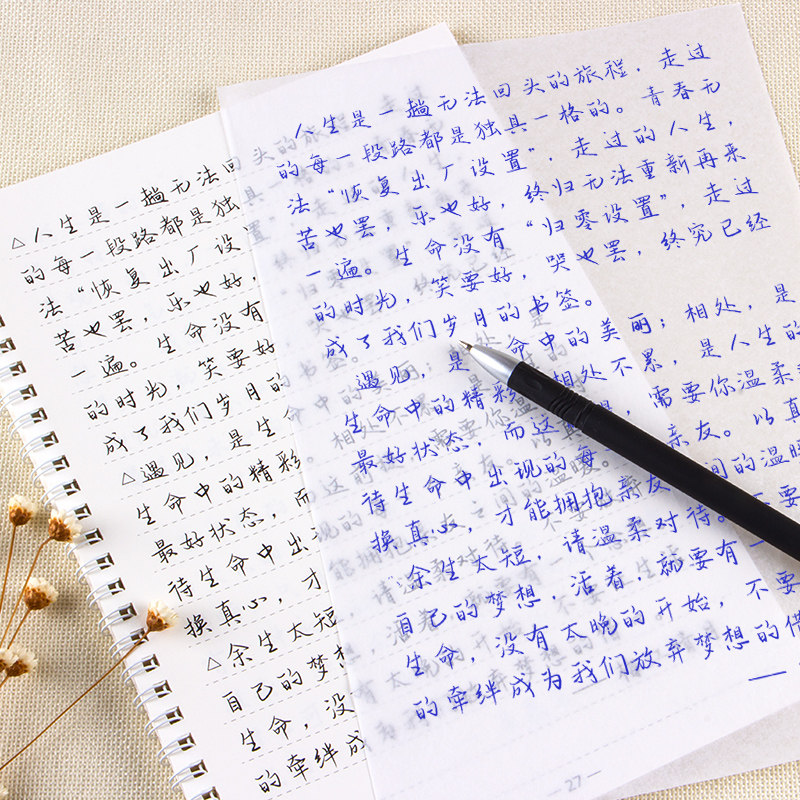 △人生是一趟无法回
的每一段路都是独
法“恢复出厂设
苦也罢，乐也好，
一遍。生命没有
的时光，笑要好
成了我们岁月的
△遇见，是生
生命中的精彩
最好状态，而
待生命中出现
换真心，才
△余生太短
自己的梦想
生命，没
的牵绊成
人生是一趟无法回头的旅程，走过
的每一段路都是独具一格的。青春无
法“恢复出厂设置”，走过的人生，
苦也罢，乐也好，终归无法重新再来
一遍。生命没有“归零设置”，走过
的时光，笑要好，哭也罢，终究已经
成了我们岁月的书签。
遇见，是 命中的美丽；相处，是
生命中的精彩 相处不累，是人生的
最好状态，而这 需要你温柔
待生命中出现的每 亲友。以真
换真心，才能拥抱亲友 间的温暖
余生太短，请温柔对待。 要
自己的梦想，活着，就要有一
生命，没有太晚的开始，不要
的牵绊成为我们放弃梦想的借
——
— 27 —